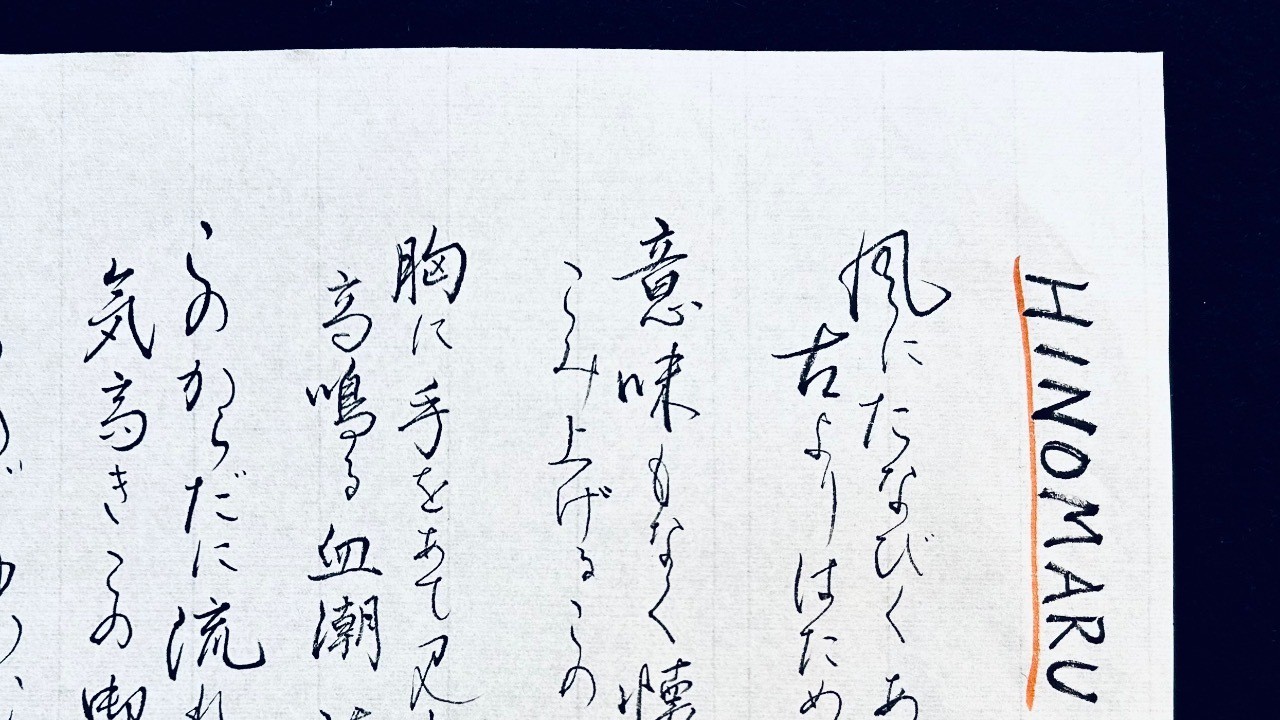 HINOMARU
風にたなびくあ
古よりはため
意味もなく懐
こみ上げるこの
胸に手をあて見
高鳴る血潮
このからだに流れ
気高きこの御